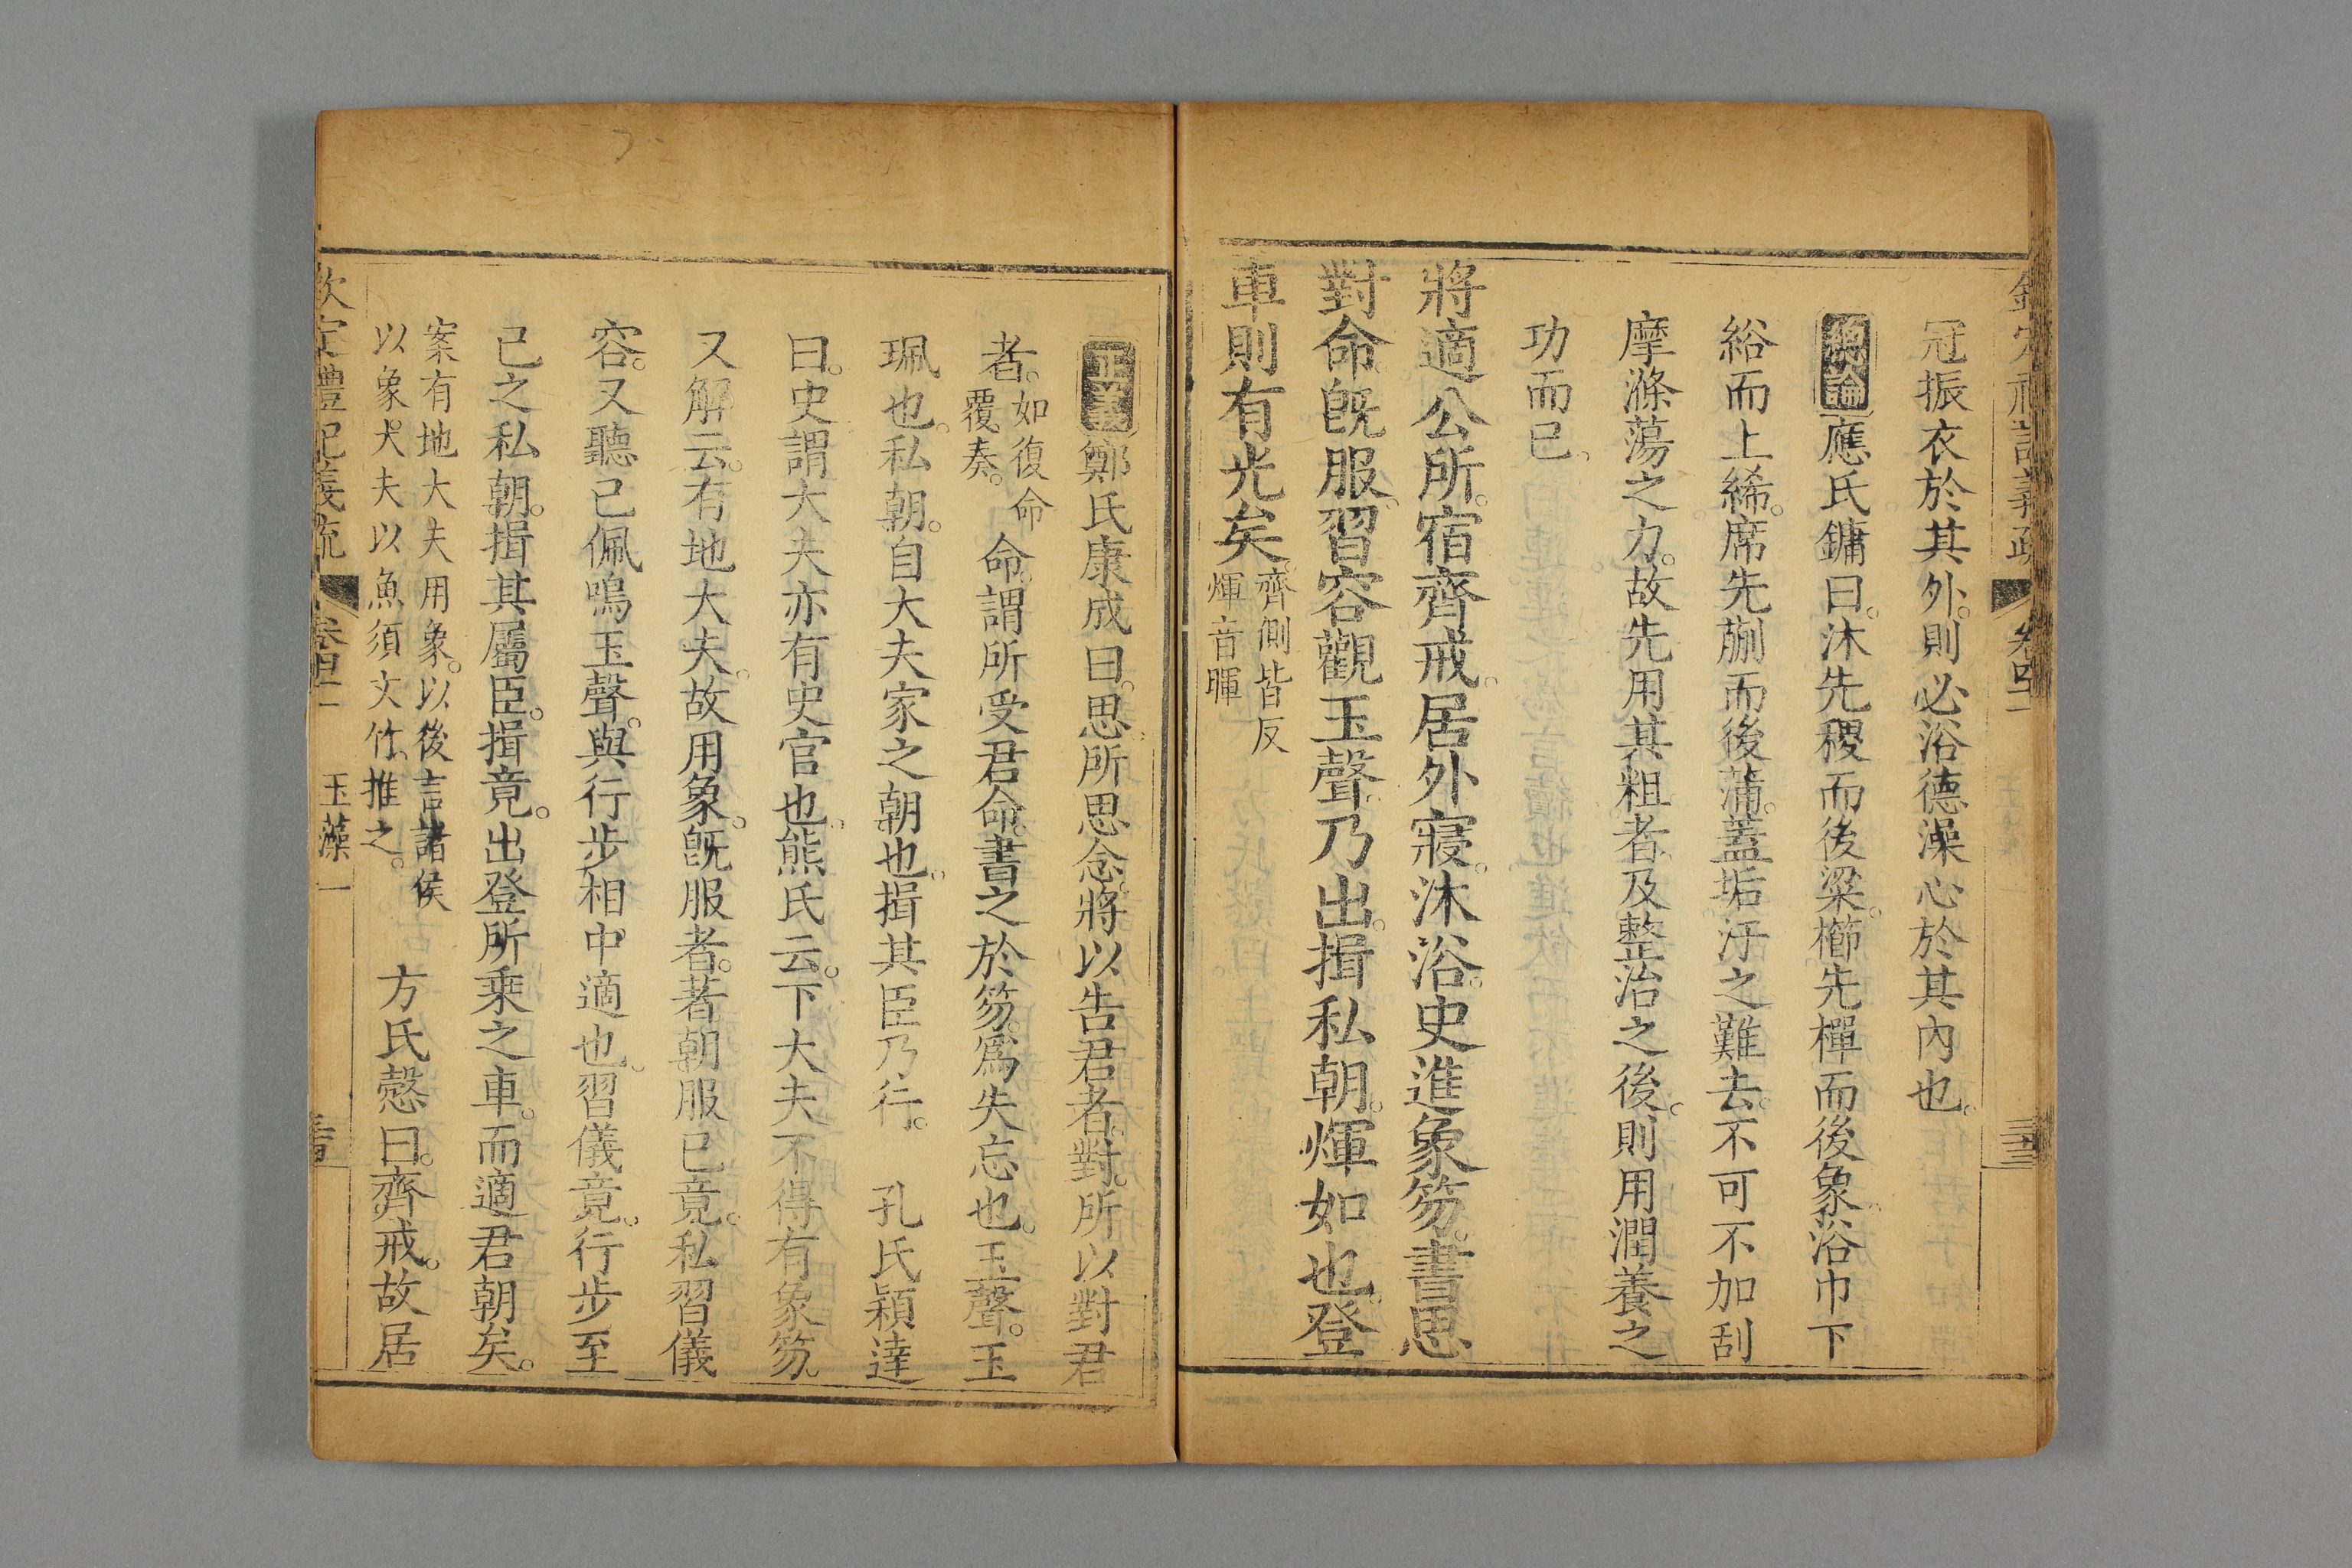 冠振衣於其外。則必浴德澡心於其內也。
總論應氏鏞曰。沐先稷而後粱。櫛先樿而後象。浴巾下
綌而上絺。席先蒯而後蒲。蓋垢汙之難去。不可不加刮
摩滌蕩之力。故先用其粗者。及整治之後。則用潤養之
功而已。
將適公所。宿齊戒。居外寢。沐浴。史進象笏。書思
對命。旣服。習容觀玉聲。乃出。揖私朝。煇如也。登
車則有光矣。
齊側皆反
煇音暉
正義鄭氏康成曰。思。所思念。將以告君者。對。所以對君
者。
如復命
覆奏。
命。謂所受君命。書之於笏。爲失忘也。玉聲。玉
珮也。私朝。自大夫家之朝也。揖其臣乃行。 孔氏穎達
曰。史謂大夫亦有史官也。熊氏云。下大夫不得有象笏。
又解云。有地大夫。故用象。旣服者。著朝服已竟。私習儀
容。又聽已佩鳴玉聲。與行步相中適也。習儀竟。行步至
己之私朝。揖其屬臣。揖竟。出登所乘之車。而適君朝矣。
案有地大夫用象。以後言諸侯
以象。大夫以魚須文竹。推之。
方氏愨曰。齊戒。故居
欽定禮記義疏
卷四十二
玉藻一